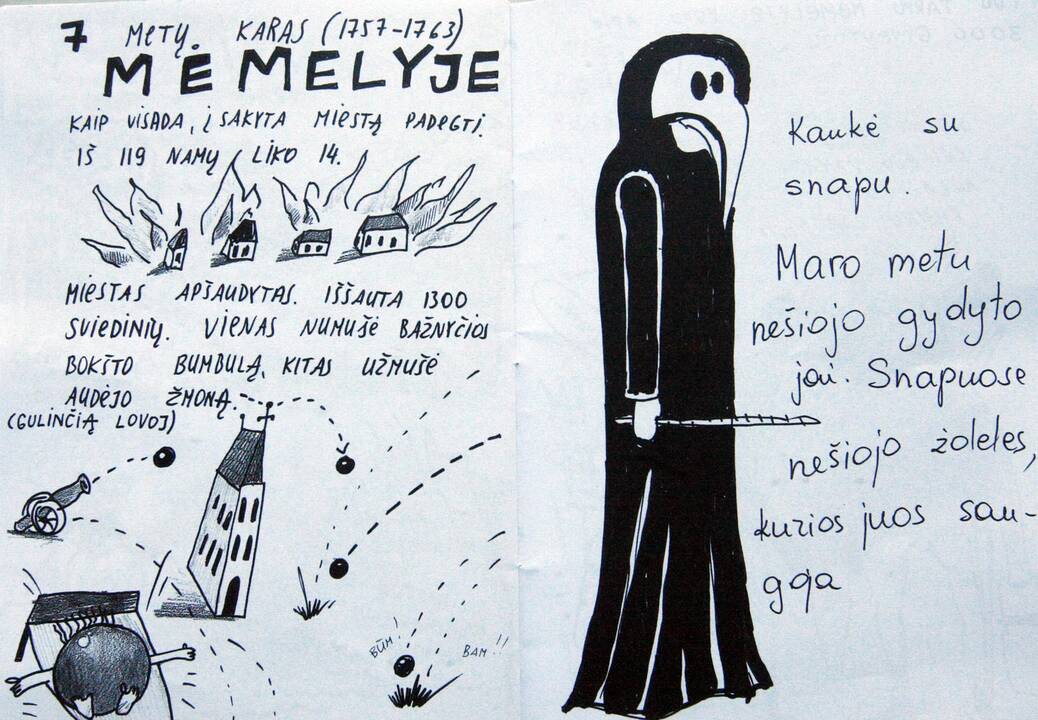 7 METŲ KARAS (1757-1763)
MĖMELYJE
KAIP VISADA, ĮSAKYTA MIESTĄ PADEGTI.
IŠ 119 NAMŲ LIKO 14.
MIESTAS APŠAUDYTAS. IŠŠAUTA 1300
SVIEDINIŲ. VIENAS NUMUŠĖ BAŽNYČIOS
BOKŠTO BUMBULĄ, KITAS UŽMUŠĖ
AUDĖJO ŽMONĄ.
(GULINČIĄ LOVOJ)
BŪM!
BAM!!
Kaukė su
snapu.
Maro metu
nešiojo gydyto
jai. Snapuose
nešiojo žoleles,
kurios juos sau-
goja